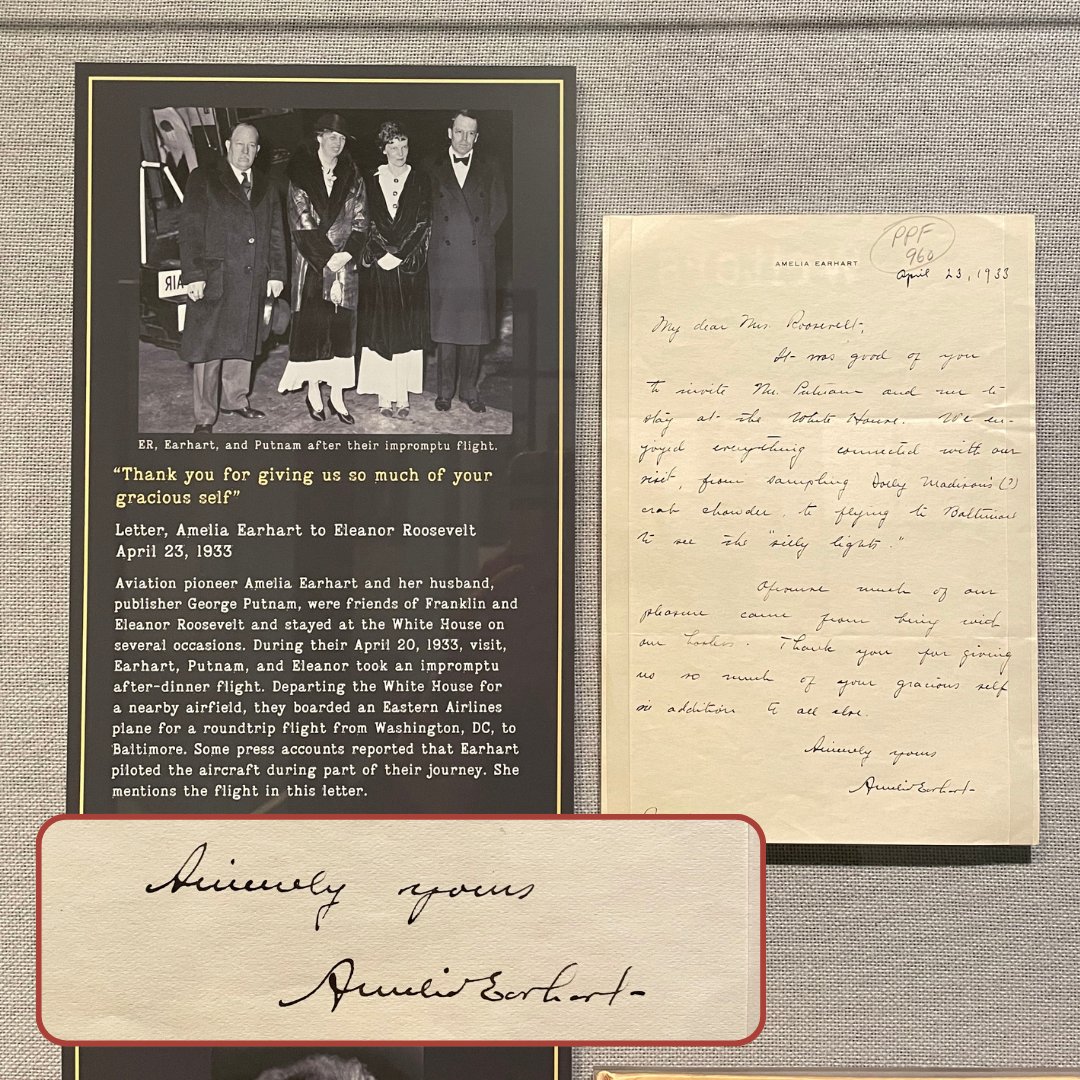 AIR
ER, Earhart, and Putnam after their impromptu flight.
“Thank you for giving us so much of your
gracious self”
Letter, Amelia Earhart to Eleanor Roosevelt
April 23, 1933
Aviation pioneer Amelia Earhart and her husband,
publisher George Putnam, were friends of Franklin and
Eleanor Roosevelt and stayed at the White House on
several occasions. During their April 20, 1933, visit,
Earhart, Putnam, and Eleanor took an impromptu
after-dinner flight. Departing the White House for
a nearby airfield, they boarded an Eastern Airlines
plane for a roundtrip flight from Washington, DC, to
Baltimore. Some press accounts reported that Earhart
piloted the aircraft during part of their journey. She
mentions the flight in this letter.
PPF
960
AMELIA EARHART
April 23, 1933
My dear Mrs. Roosevelt,
It was good of you
to invite Mr. Putnam and me to
stay at the White House. We en-
joyed everything connected with our
visit, from sampling Dolly Madison's (?)
crab chowder, to flying to Baltimore
to see the "silly lights."
Ofcourse much of our
pleasure came from being with
our hostess. Thank you for giving
us so much of your gracious self
in addition to all else.
Sincerely yours
Amelia Earhart
Sincerely yours
Amelia Earhart